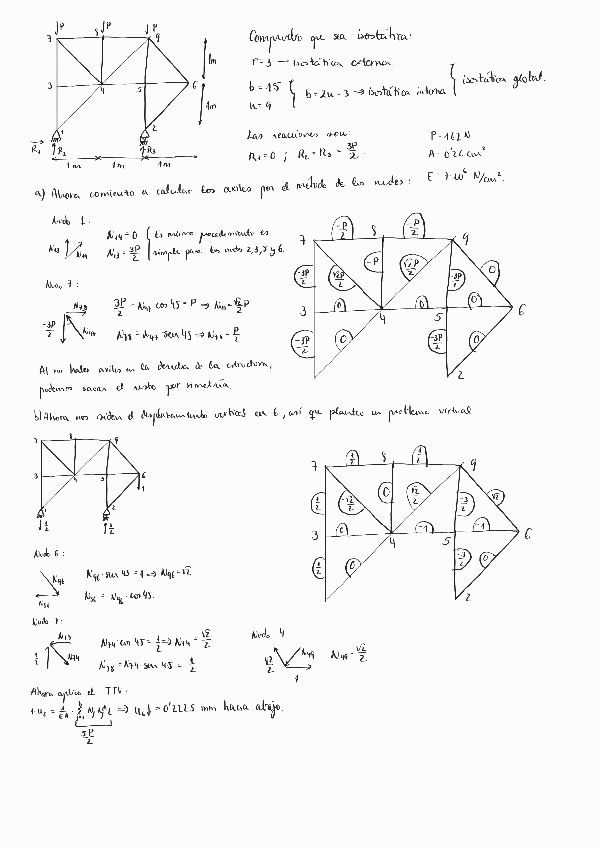 ↓P ↓P ↓P
7 8 9
3 4 5 6
1 2
1m
1m
R1 R2 R3
1m 1m 1m
Compruebo que sea isostática:
r=3 — isostática externa.
b=15
n=9
b=2n-3 → isostática interna
isostática global.
Las reacciones son:
R1=0 ; R2=R3=3P/2.
P=162 N
A=0'26 cm²
E=7·10⁶ N/cm².
a) Ahora comienzo a calcular los axiles por el método de los nudos:
Nudo 1:
N13 N14
N14=0
N13=3P/2
Es mismo procedimiento es
simple para los nudos 2,3,5 y 6.
Nudo 7:
N78
-3P/2
N47
3P/2 - N47 cos 45 = P → N47=√2/2 P
N78=N47·sen 45 → N78=P/2
Al no haber axiles en la derecha de la estructura,
podemos sacar el resto por simetría.
7 -P/2 8 -P/2 9
-3P/2 √2P/2 -P √2P/2 -3P/2 0
3 0 4 0 5 0 6
-3P/2 0 -3P/2 0
2
b) Ahora nos piden el desplazamiento vertical en 6, así que planteo un problema virtual
7 8 9
3 4 5 6
1
1 2
1/2
7 1/2 8 1/2 9
1/2 -√2/2 0 √2/2 -3/2 √2
3 0 4 -1 5 -1 6
1/2 0 -3/2 0
2
Nudo 6:
N96
N56
N96·sen 45=1 → N96=√2
N56=N96·cos 45.
Nudo 7:
N78
1/2
N74
N74·cos 45=1/2 → N74=√2/2
N78=N74·sen 45=1/2
Nudo 4
√2/2
N49
1
N49=√2/2
Ahora aplico el TTV:
1·u6=1/EA·Σ Ni Ni* L → u6↓=0'2225 mm hacia abajo.